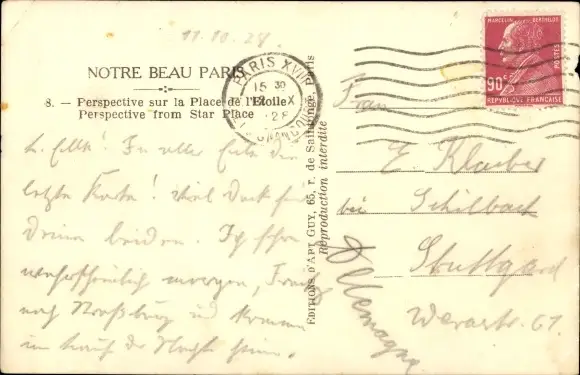 11.10.28
NOTRE BEAU PARIS
8. — Perspective sur la Place de l'Etoile
Perspective from Star Place
L. Elli! In aller Eile die
letzte Karte! Viel Dank für
Deine beiden. Ich fahre
wahrscheinlich morgen,
nach Straßburg und komme
im Lauf der
EDITIONS D'ART GUY, 65, r. de Saintonge, Paris
Reproduction interdite
PARIS XVIII
15 30
12 X
28
MARCELIN BERTHELOT
POSTES
90c
REPUBLIQUE FRANÇAISE
E. Klaiber
bei Schilbach
Stuttgart
Werastr. 67.
Allemagne